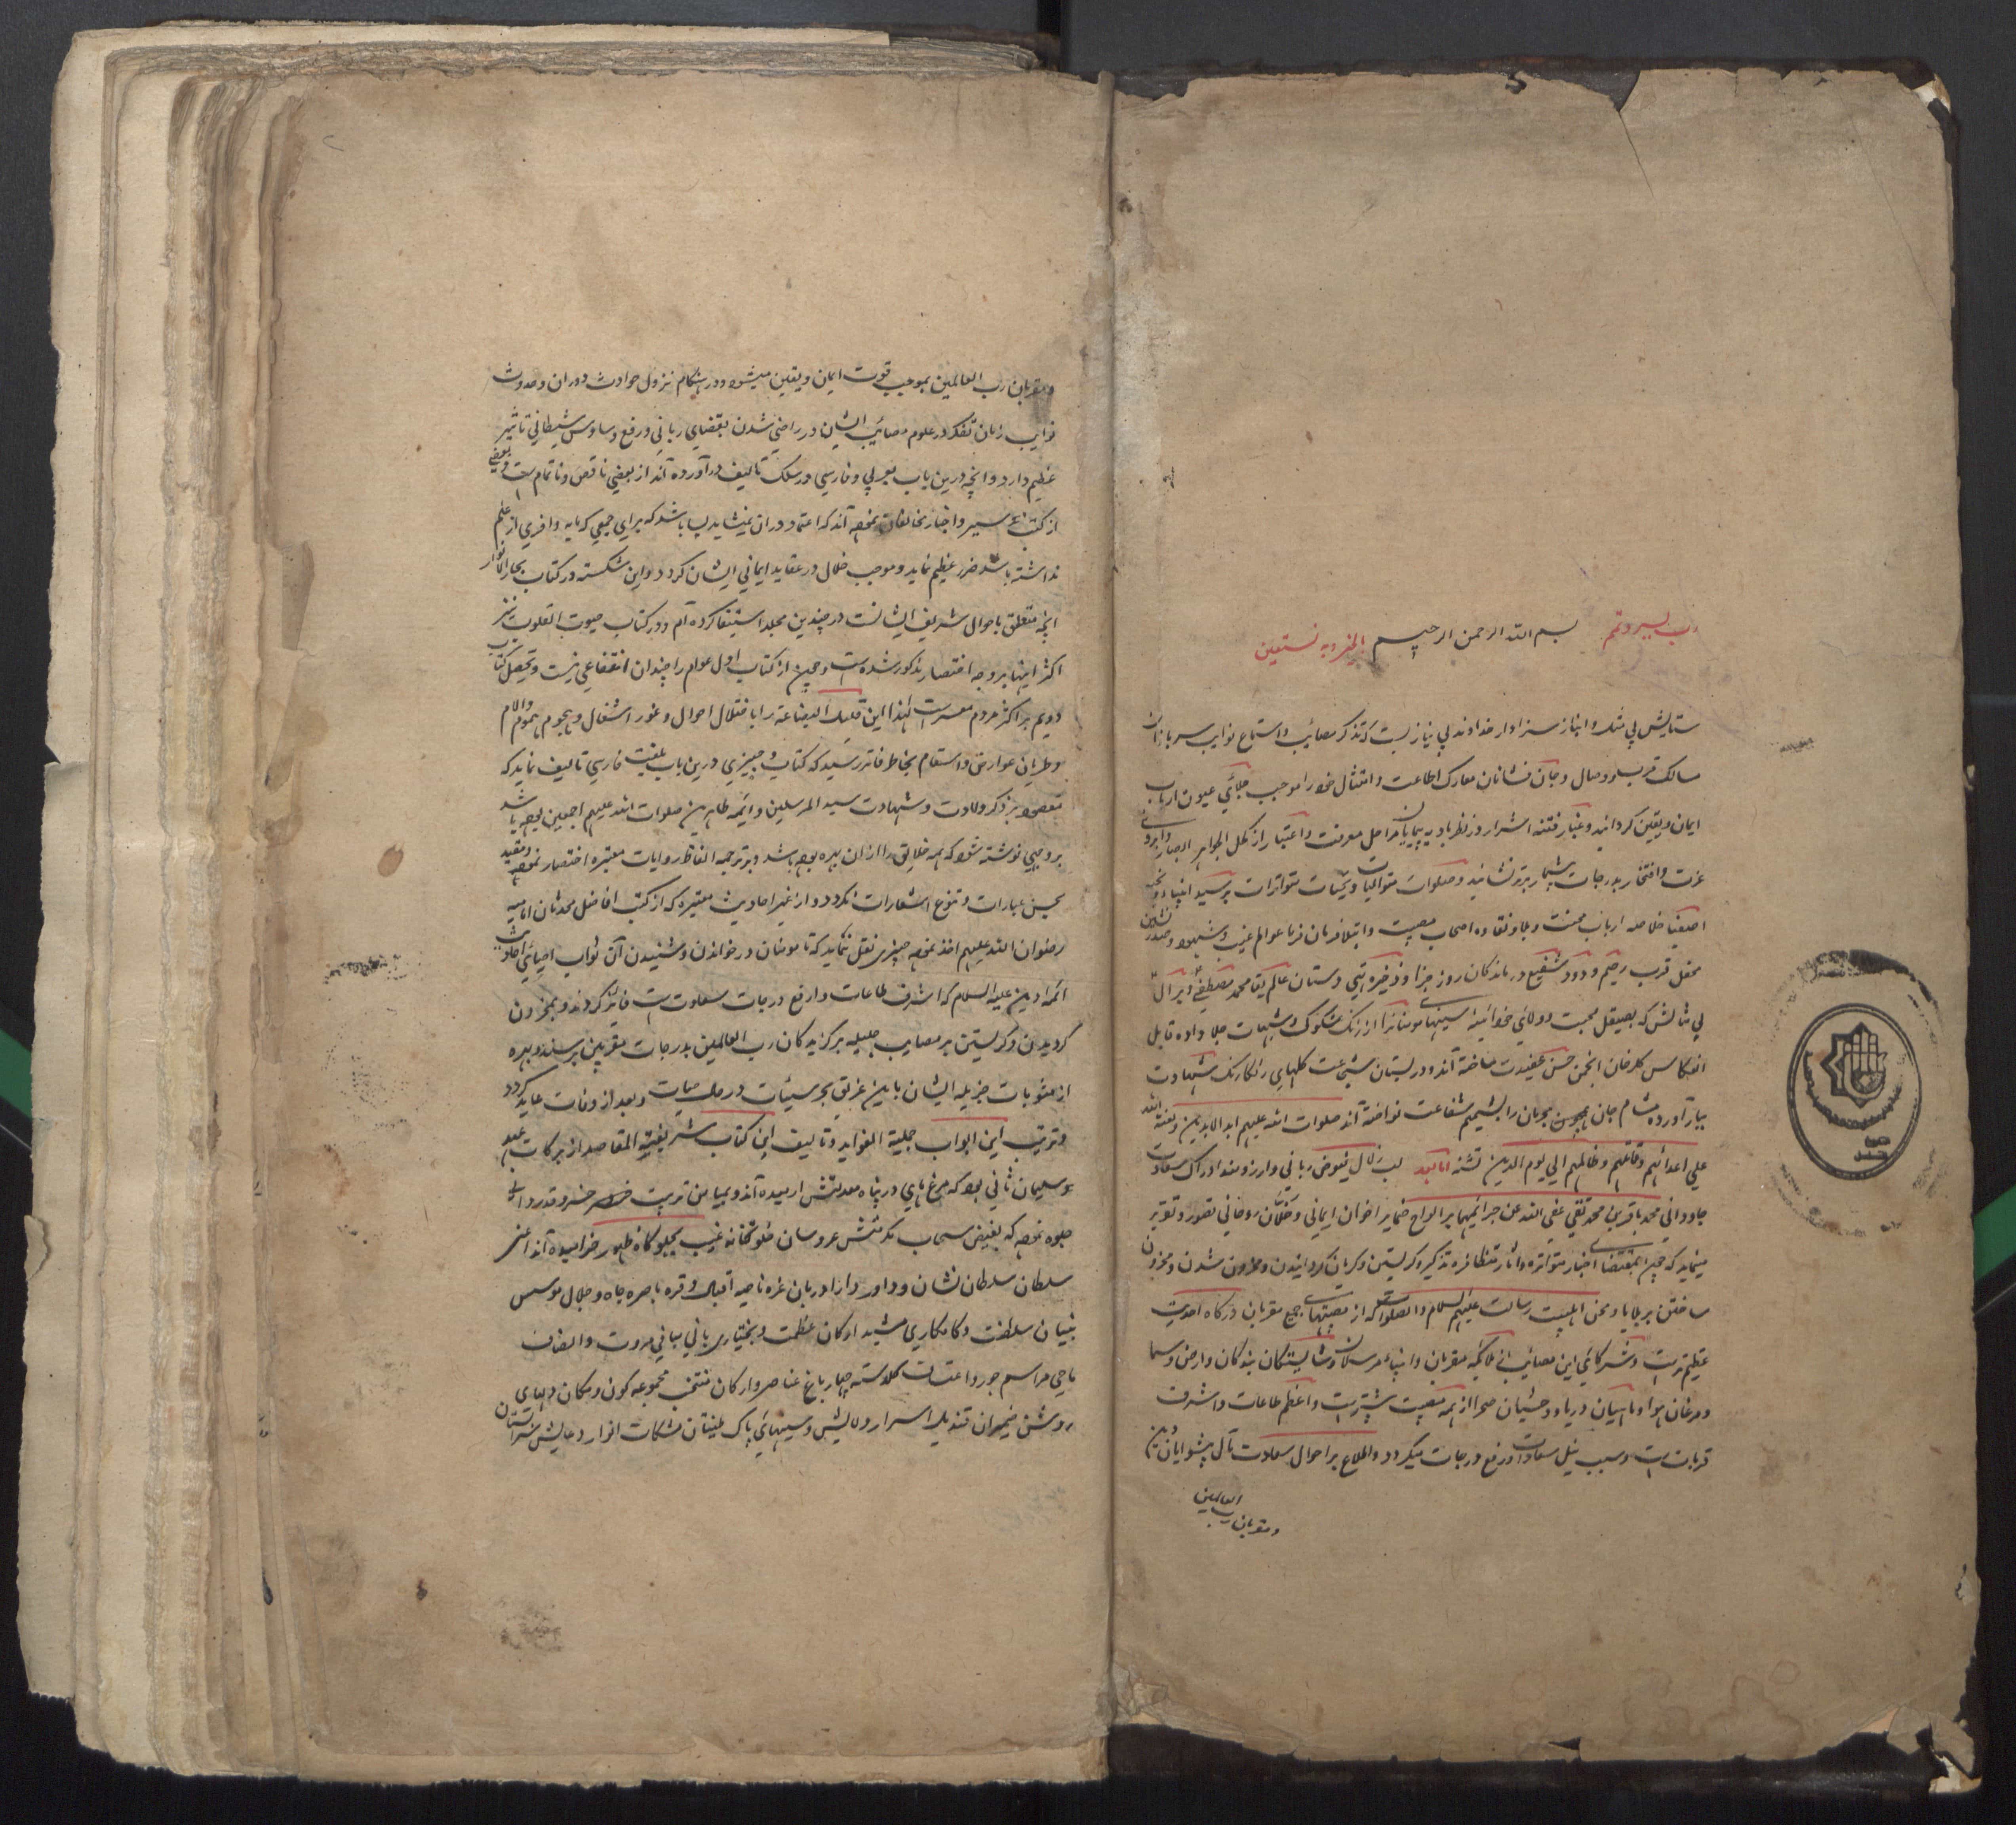 رب یسر و تمم بسم الله الرحمن الرحیم بالخیر و به نستعین
ستایش بی مثل و انباز سزاوار خداوند بی نیازیست که تذکر مصایب و استماع نوایب سربازان
مسالک قرب و وصال و جان فشانان معارک اطاعت و امتثال خود را موجب جلای عیون ارباب
ایمان و یقین گردانید و غبار فتنه اشرار در نظر بادیه پیمایان مراحل معرفت و اعتبار از کحل الجواهر ابصار و ابروی
عزت و افتخار بدرجات بیشمار برتر نشانید و صلوات متوالیات و تحیات متواترات بر سید انبیا و نخبه
اصفیا خلاصه ارباب محنت و بلا و نقاوه اصحاب مصیبت و ابتلا فرمان فرما عوالم غیب و شهود و صدرنشین
محفل قرب رحیم و ودود شفیع درماندکان روز جزا و ذخیره تهی دستان عالم بقا محمد مصطفی و بر آل
بی مثالش که بصیقل محبت و ولای خود آئینه سینهای مومنانرا از زنک شکوک و شبهات جلا داده قابل
انعکاس کلرخان انجمن حسن عقیدت ساخته اند و در بستان شیعت کلهای رنکارنک شهادت
ببار آورده مشام جان مجرمان را بشمیم شفاعت نواخته اند صلوات الله علیهم ابد الابدین و لعنة الله
علی اعدائهم و قاتلهم و ظالمهم الی یوم الدین اما بعد تشنه لب زلال فیوض ربانی و آرزومند ادراک سعادت
جاودانی محمد باقر بن محمد تقی عفی الله عن جرائمهما بر الواح ضمایر اخوان ایمانی و خلان روحانی تصویر و تقریر
مینماید که چون بمقتضای اخبار متواتره و اثار متظافره تذکیر و کریستن و کریان کردانیدن و محزون شدن و محزون
ساختن بر بلایا و محن اهلبیت رسالت علیهم السلام و الصلوات که از مصیبتهای جمیع مقربان درکاه احدیت
عظیم تر است و شرکای این مصائب از ملائکه مقربان و انبیاء مرسلان و شایستکان بندکان و ارض و سما
و مرغان هوا و ماهیان دریا و وحشیان صحرا از همه مصیبت بیشتر است و اعظم طاعات و اشرف
قربات است و سبب نیل سعادات و رفع درجات میکردد و اطلاع بر احوال سعادت مآل پیشوایان دین
و مقربان رب العالمین
و مقربان رب العالمین بموجب قوت ایمان و یقین میشود و در هنکام نزول حوادث دوران و حدوث
نوایب زمان تفکر در علوم مصائب ایشان در راضی شدن بقضای ربانی و رفع وساوس شیطانی تاثیر
عظیم دارد و انچه درین باب بعربی و فارسی در سلک تالیف در آورده اند از بعضی ناقص و ناتمام است و بعضی
از کتب سیر و اخبار مخالفان نموده اند که اعتماد در ان نمیشاید بسا باشد که برای جمعی که مایه وافری از علم
نداشته باشد ضرر عظیم نماید و موجب خلال در عقاید ایمانی ایشان کردد و این شکسته در کتاب بحار الانوار
انچه متعلق باحوال شریف ایشانست در چندین مجلد استیفا کرده ام و در کتاب حیوت القلوب نیز
اکثر اینها بر وجه اختصار مذکور شده است و چون از کتاب اول عوام را چندان انتفاعی نیست و تحصیل کتاب
دویم بر اکثر مردم معسر است لهذا این قلیل البضاعة را با اختلال احوال و غور اشغال و هجوم هموم و الام
و طریان عوارض و اسقام بخاطر فاتر رسید که کتاب وجیزی درین باب بلغت فارسی تالیف نماید که
مقصور بر ذکر ولادت و شهادت سید المرسلین و ائمه طاهرین صلوات الله علیهم اجمعین بوده باشد
بر وجهی نوشته شود که همه خلایق را از ان بهره بوده باشد و بر ترجمه الفاظ روایات معتبره اختصار نموده و مقید
بحسن عبارات و تنوع استعارات نکردد و از غیر احادیث معتبره که از کتب افاضل محدثان امامیه
رضوان الله علیهم اخذ نموده چیزی نقل ننماید که تا مومنان در خواندن و شنیدن آن ثواب احیای احادیث
ائمه دین علیه السلام که اشرف طاعات و ارفع درجات سعادت است فایز کردند و بمحزون
کردیدن و کریستن بر مصایب جلیله برکزیدکان رب العالمین بدرجات مقربین برسند و بهره
از مثوبات جزیله ایشان باین غریق بحر سیئات در حال حیات و بعد از وفات عاید کردد
و ترتیب این ابواب جلیة الفواید و تالیف این کتاب شریفة المقاصد از برکات عهد
سلیمان ثانی بود که مرغ های در پناه معدلتش ارمیده اند و بمیامن تربیت خسرو قدردانی
جلوه نموده که بفیض سحاب مکرمتش عروسان خلوتخانه غیب بجلوکاه ظهور خرامیده اند اعنی
سلطان سلطان نشان و داور دارا دربان غره ناصیه اقبال و قره باصره جاه و جلال موسس
بنیان سلطنت و کامکاری مشید ارکان عظمت و بختیاری بانی مبانی مروت و انصاف
ماحی مراسم جور و اعتساف کلدسته چهار باغ عناصر و ارکان منتخب مجموعه کون و مکان دلهای
روشن ضمیران قندیل اسرار ولایش و سینهای پاک طینتان مشکات انوار دعایش